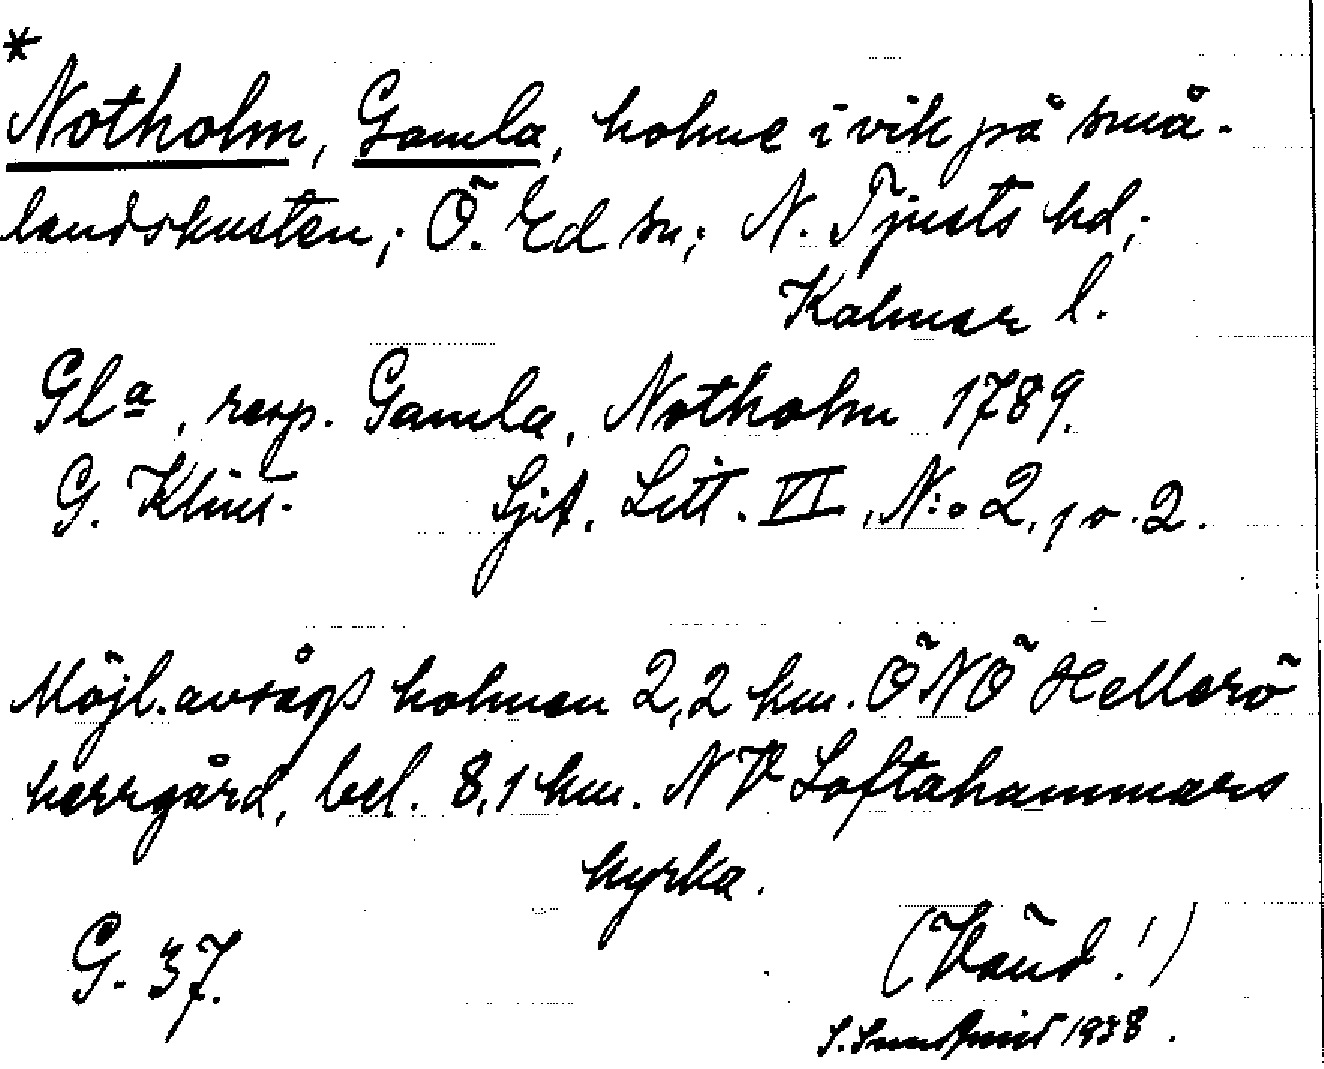 *
Notholm, Gamla, holme i vik på små-
landskusten; Ö. Ed sn; N. Tjusts hd;
Kalmar l.
Gla, resp. Gamla, Notholm 1789.
G. Klint. Sjit. Litt. VI, N:o 2, p. 2.
Möjl. avsågs holmen 2,2 km. ÖNÖ Hellerö
herrgård, bel. 8,1 km. NV Loftahammars
kyrka.
G. 37. (Vänd!)
S. 1938.